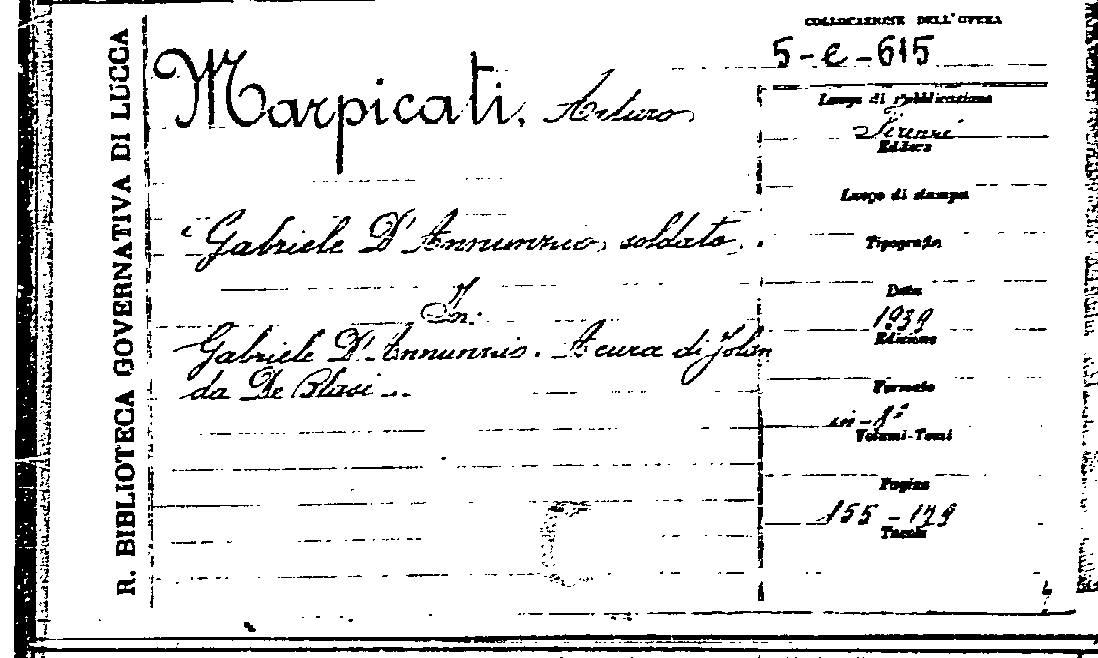 R. BIBLIOTECA GOVERNATIVA DI LUCCA
COLLOCAZIONE DELL'OPERA
5-e-615
Marpicati, Arturo
Luogo di Pubblicazione
Firenze
Editore
Luogo di stampa
Gabriele D'Annunzio, soldato.
Tipografo
Data
In:
1939
Edizione
Gabriele D'Annunzio. A cura di Jolan
da De Blasi...
Formato
in-8°
Volumi-Tomi
Pagine
155-179
Tavole